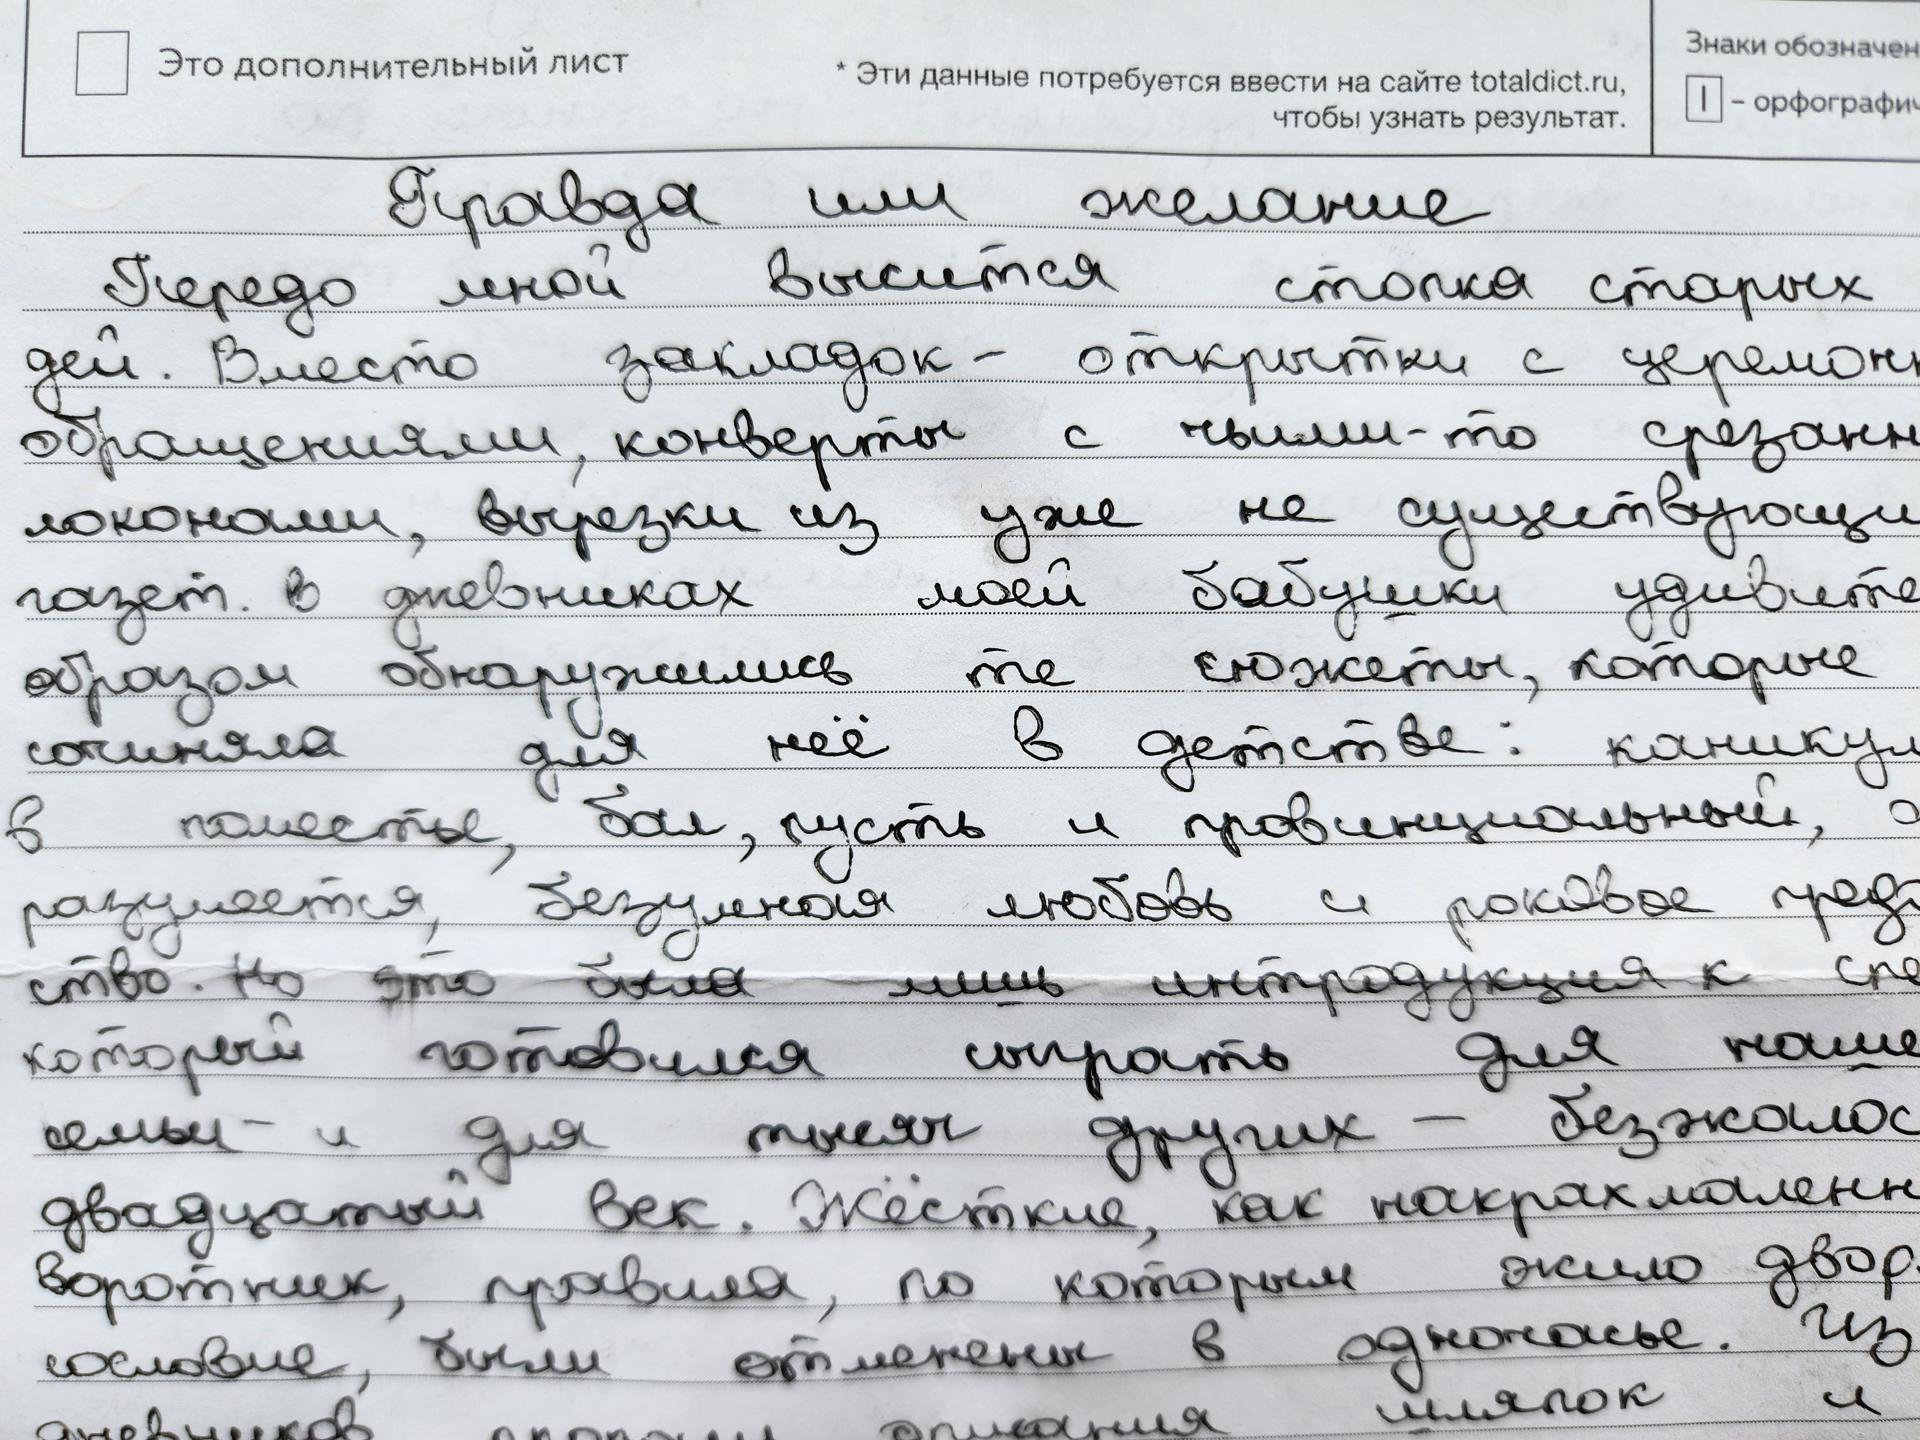 Это дополнительный лист
* Эти данные потребуется ввести на сайте totaldict.ru,
чтобы узнать результат.
Знаки обозначен
I – орфографич
Правда или желание
Передо мной высится стопка старых
дей. Вместо закладок – открытки с церемонн
обращениями, конверты с чьими-то срезанн
локонами, вырезки из уже не существующи
газет. В дневниках моей бабушки удивите
образом обнаружились те сюжеты, которые
сочиняла для неё в детстве: каникул
в поместье, бал, пусть и провинциальный, а
разумеется, безумная любовь и роковое пред
ство. Но это была лишь интродукция к спе
который готовился сыграть для наше
семьи – и для тысяч других – безжалос
двадцатый век. Жёсткие, как накрахмаленн
воротник, правила, по которым жило двор
сословие, были отменены в одночасье. Из
дневников пропали описания шляпок и